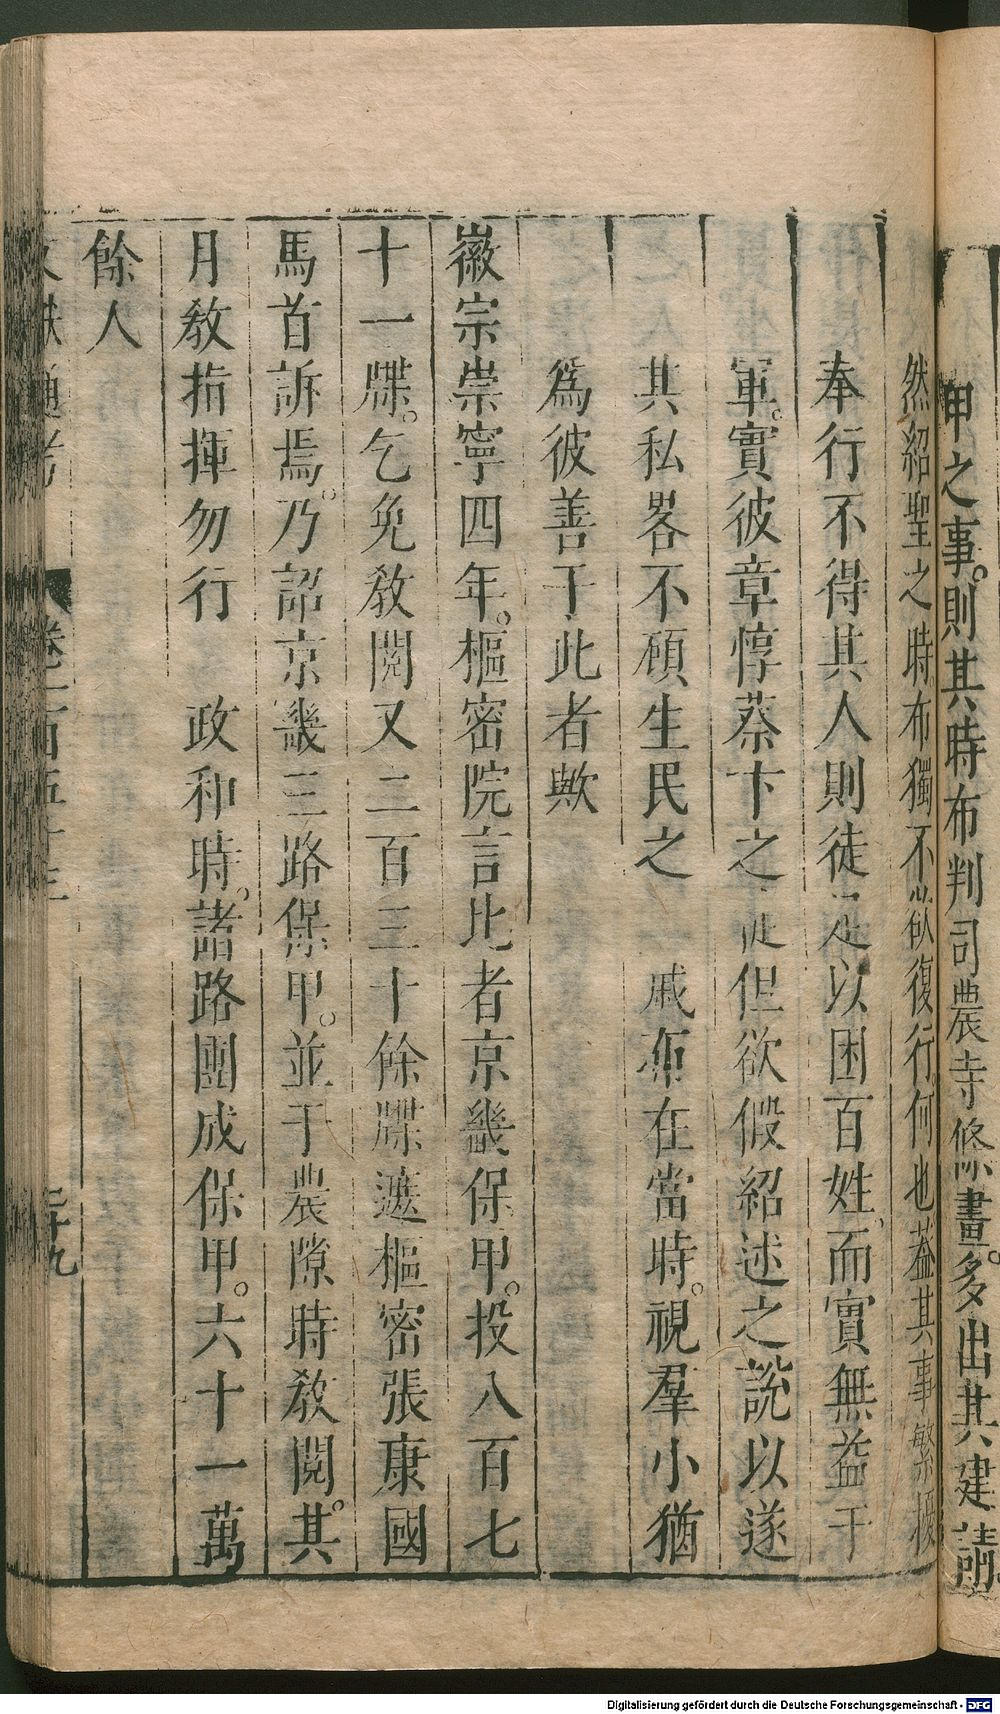 甲之事。則其時布判司農寺條畫。多出其建請
然紹聖之時布獨不欲復行何也葢其事繁擾
奉行不得其人則徒足以困百姓而實無益于
軍。實彼章惇蔡卞之徒但欲假紹述之說以遂
其私畧不顧生民之 戚布在當時。視羣小猶
爲彼善于此者歟
徽宗崇寧四年。樞密院言比者京畿保甲。投入百七
十一牒。乞免敎閱又二百三十餘牒遮樞密張康國
馬首訴焉。乃詔京畿三路保甲。並于農隙時敎閱。其
月敎指揮勿行 政和時。諸路團成保甲。六十一萬
餘人
文獻通考 卷一百五十三 二十九
Digitalisierung gefördert durch die Deutsche Forschungsgemeinschaft - DFG